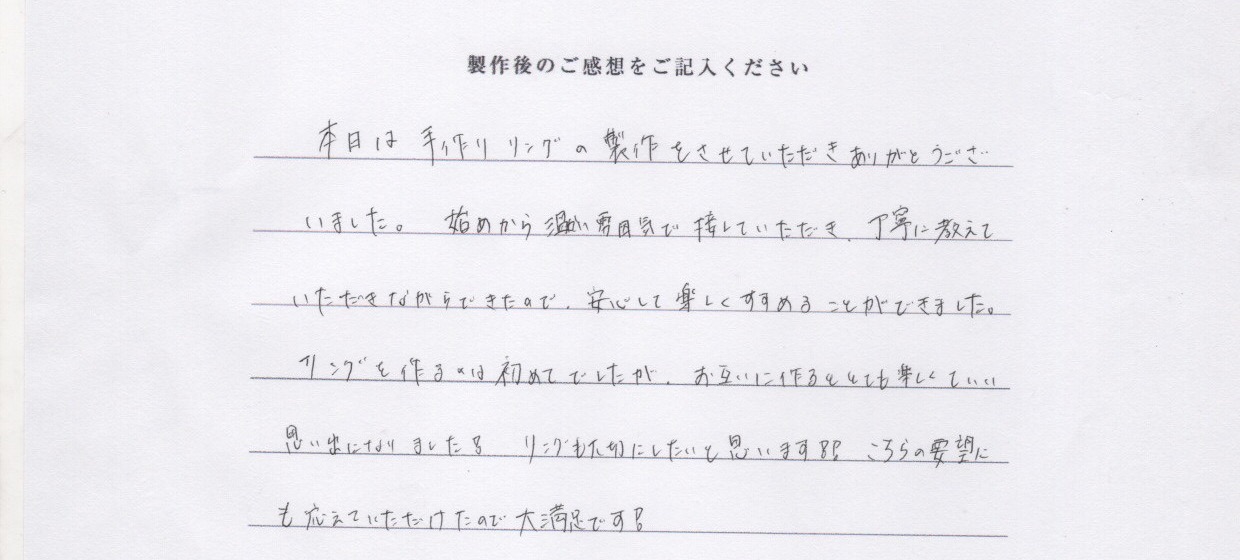 製作後のご感想をご記入ください
本日は手作りリングの製作をさせていただきありがとうござ
いました。始めから温かい雰囲気で接していただき、丁寧に教えて
いただきながらできたので、安心して楽しくすすめることができました。
リングを作るのは初めてでしたが、お互いに作るととても楽しくていい
思い出になりました!リングも大切にしたいと思います!!こちらの要望に
も応えていただけたので大満足です!